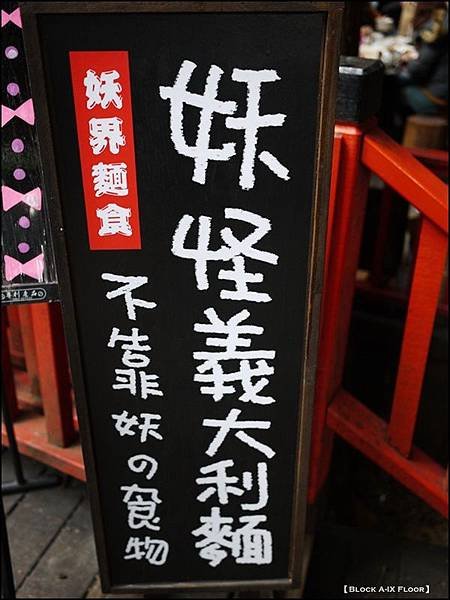 妖怪義大利麵
妖界麵食
不靠妖の食物
專利產品
【BLOCK A-IX FLOOR】